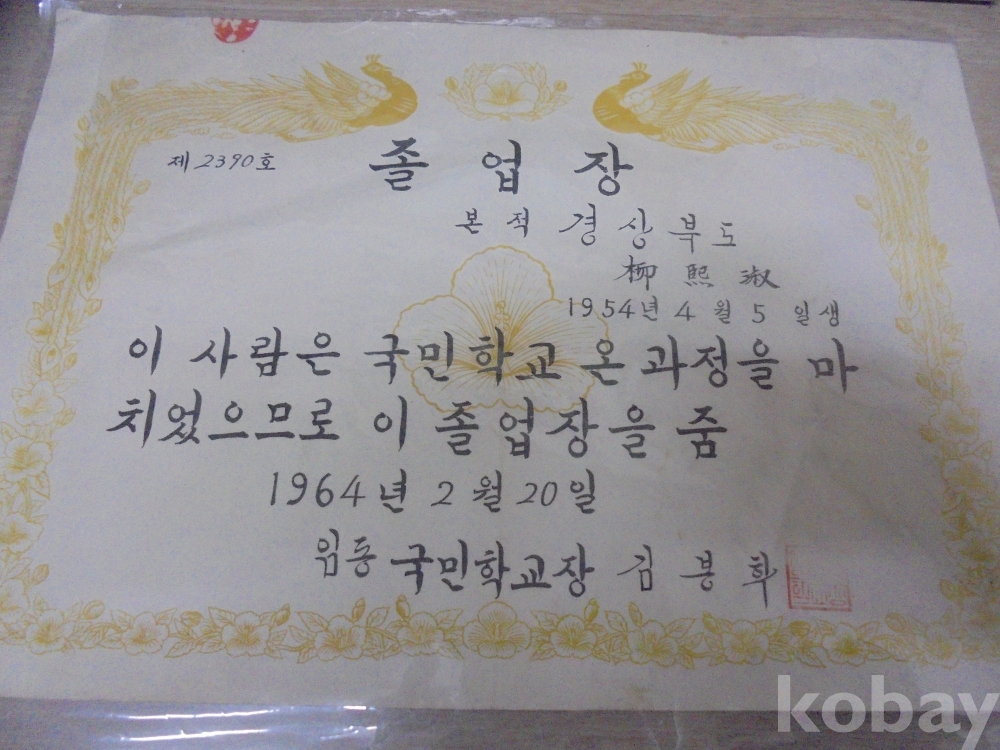 제 2390 호
졸 업 장
본 적 경 상 북 도
柳 熙 淑
1954년 4 월 5 일 생
이 사람은 국민학교 온 과정을 마
치었으므로 이 졸업장을 줌
1964년 2 월 20 일
임동 국민학교장 김 봉 화
kobay